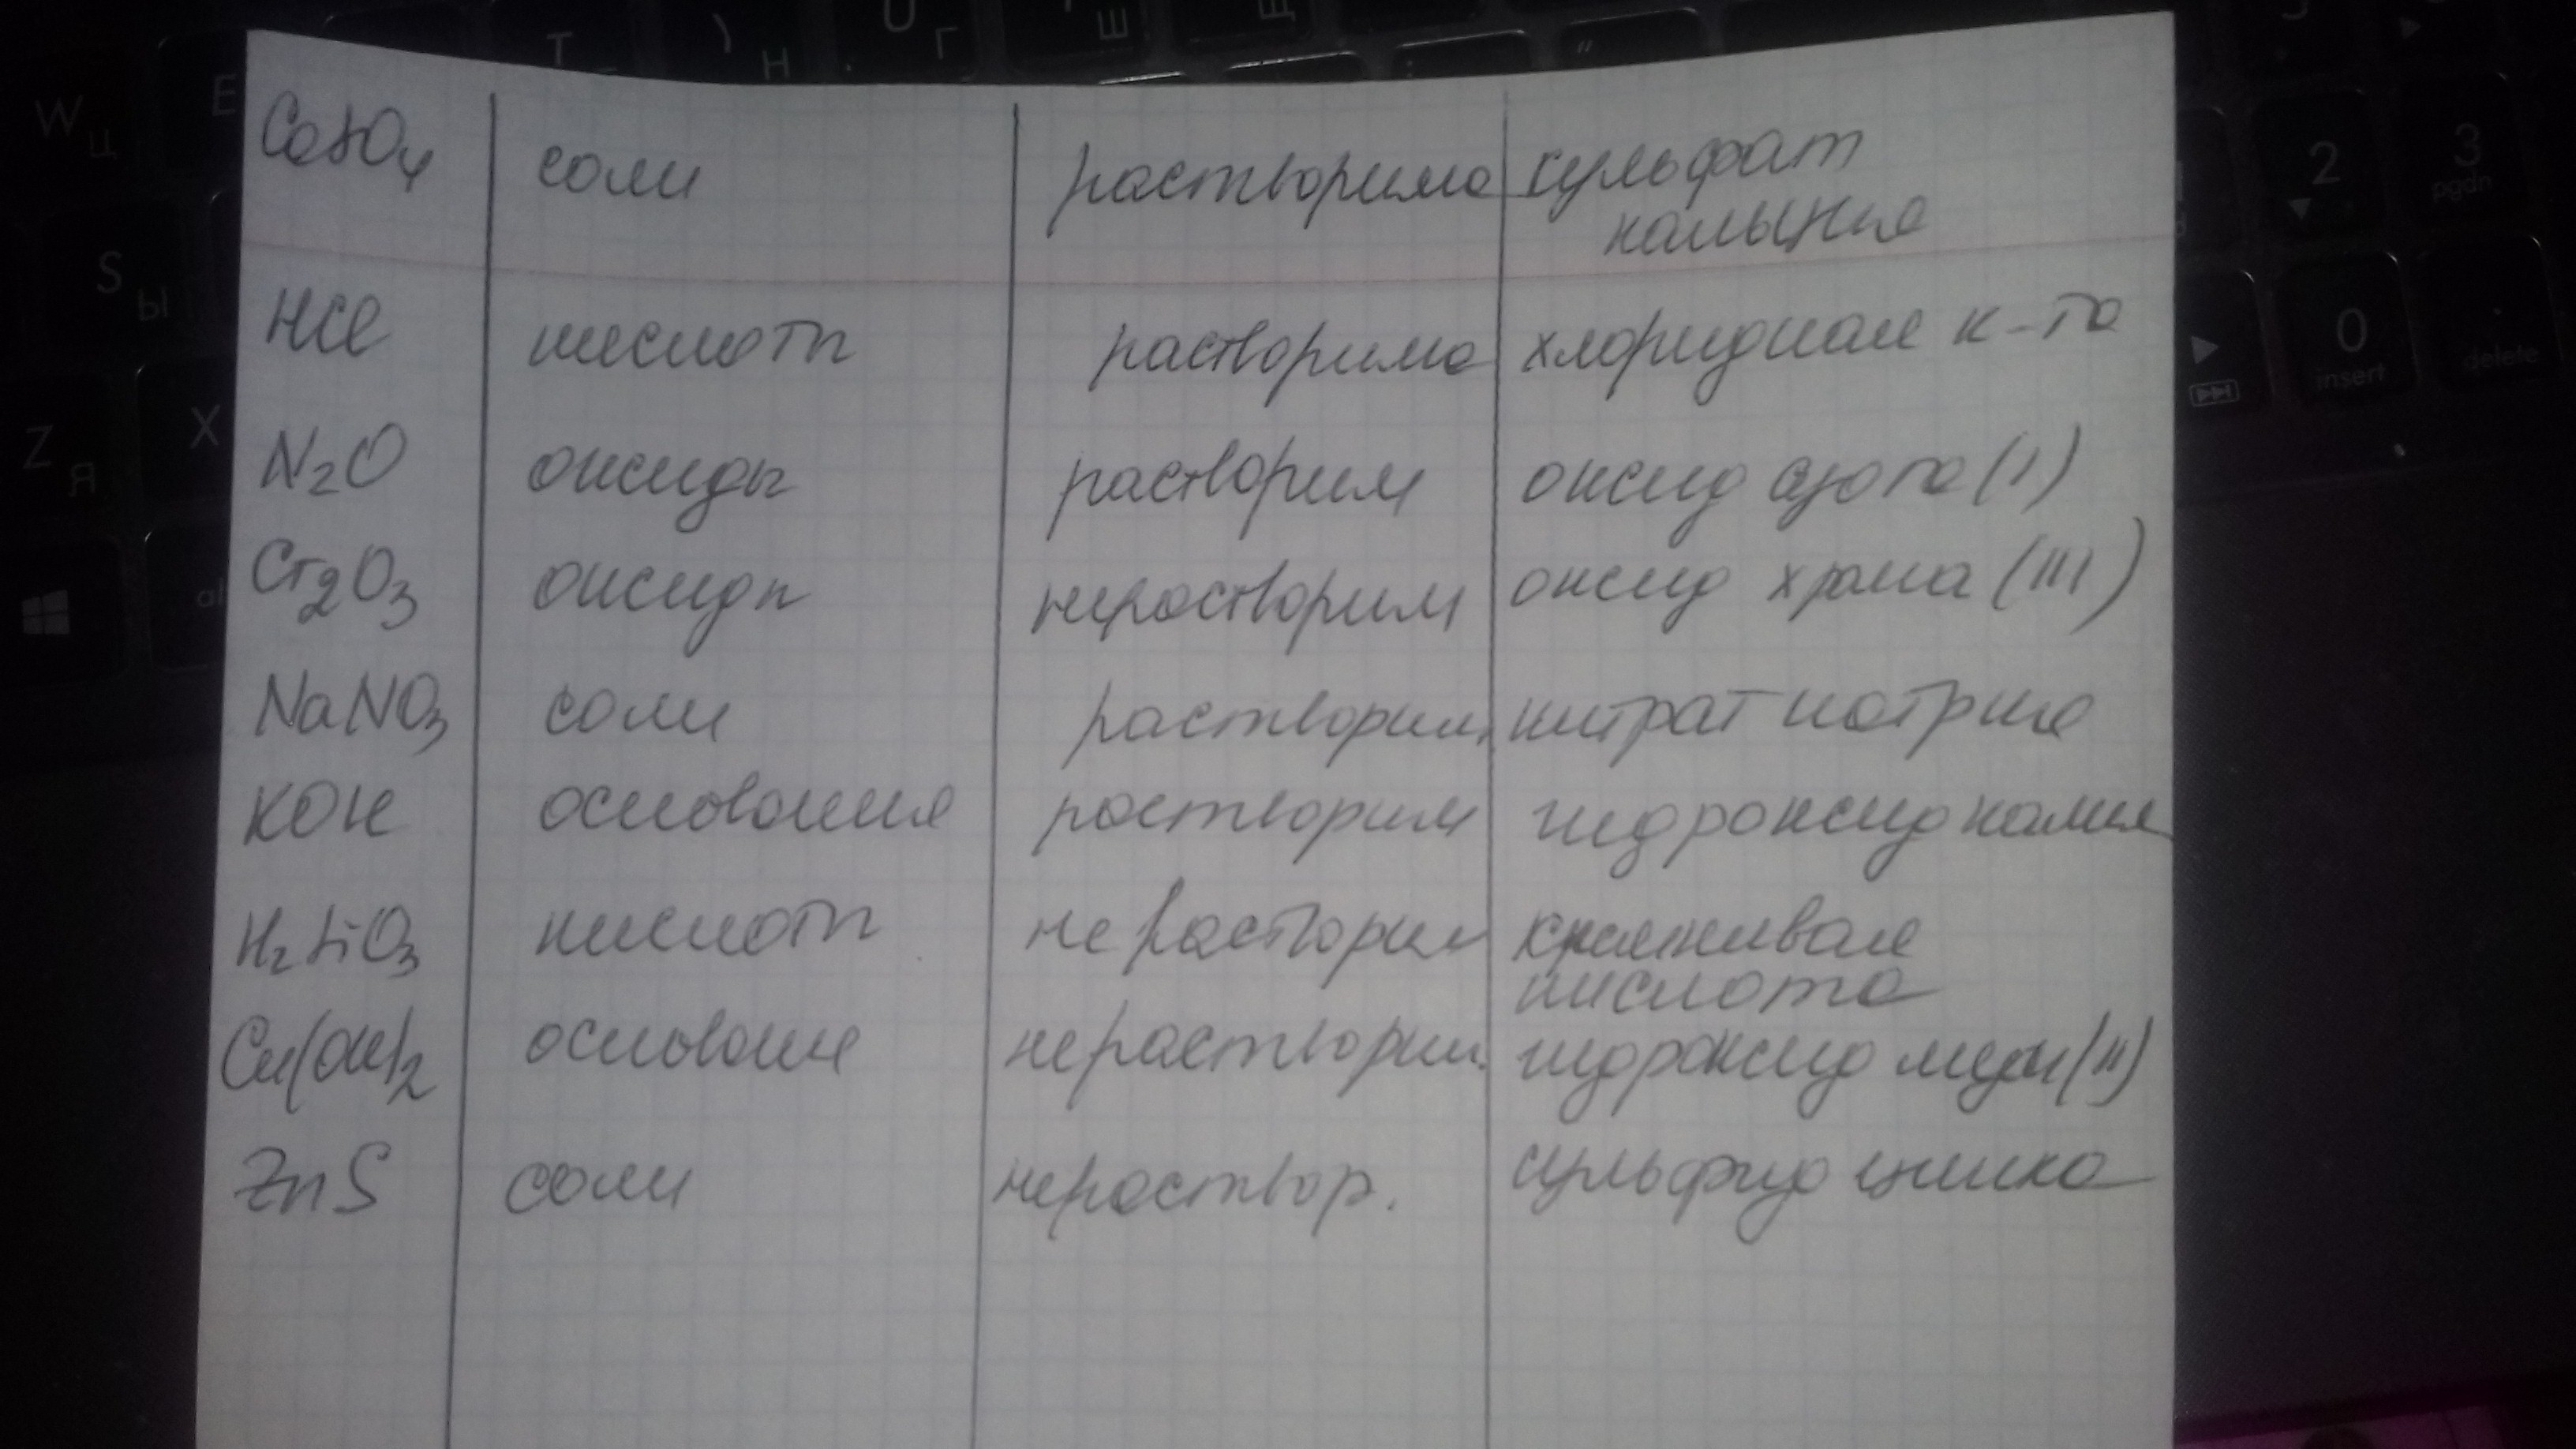 CaSO4 соли растворима сульфат
кальция
HCl кислоты растворима хлоридная к-та
N2O оксиды растворим оксид азота (I)
Cr2O3 оксиды нерастворим оксид хрома (III)
NaNO3 соли растворим. нитрат натрия
KOH основания растворим гидроксид калия
H2SiO3 кислоты не растворим кремниевая
кислота
Cu(OH)2 основание нерастворим. гидроксид меди (II)
ZnS соли нераствор. сульфид цинка